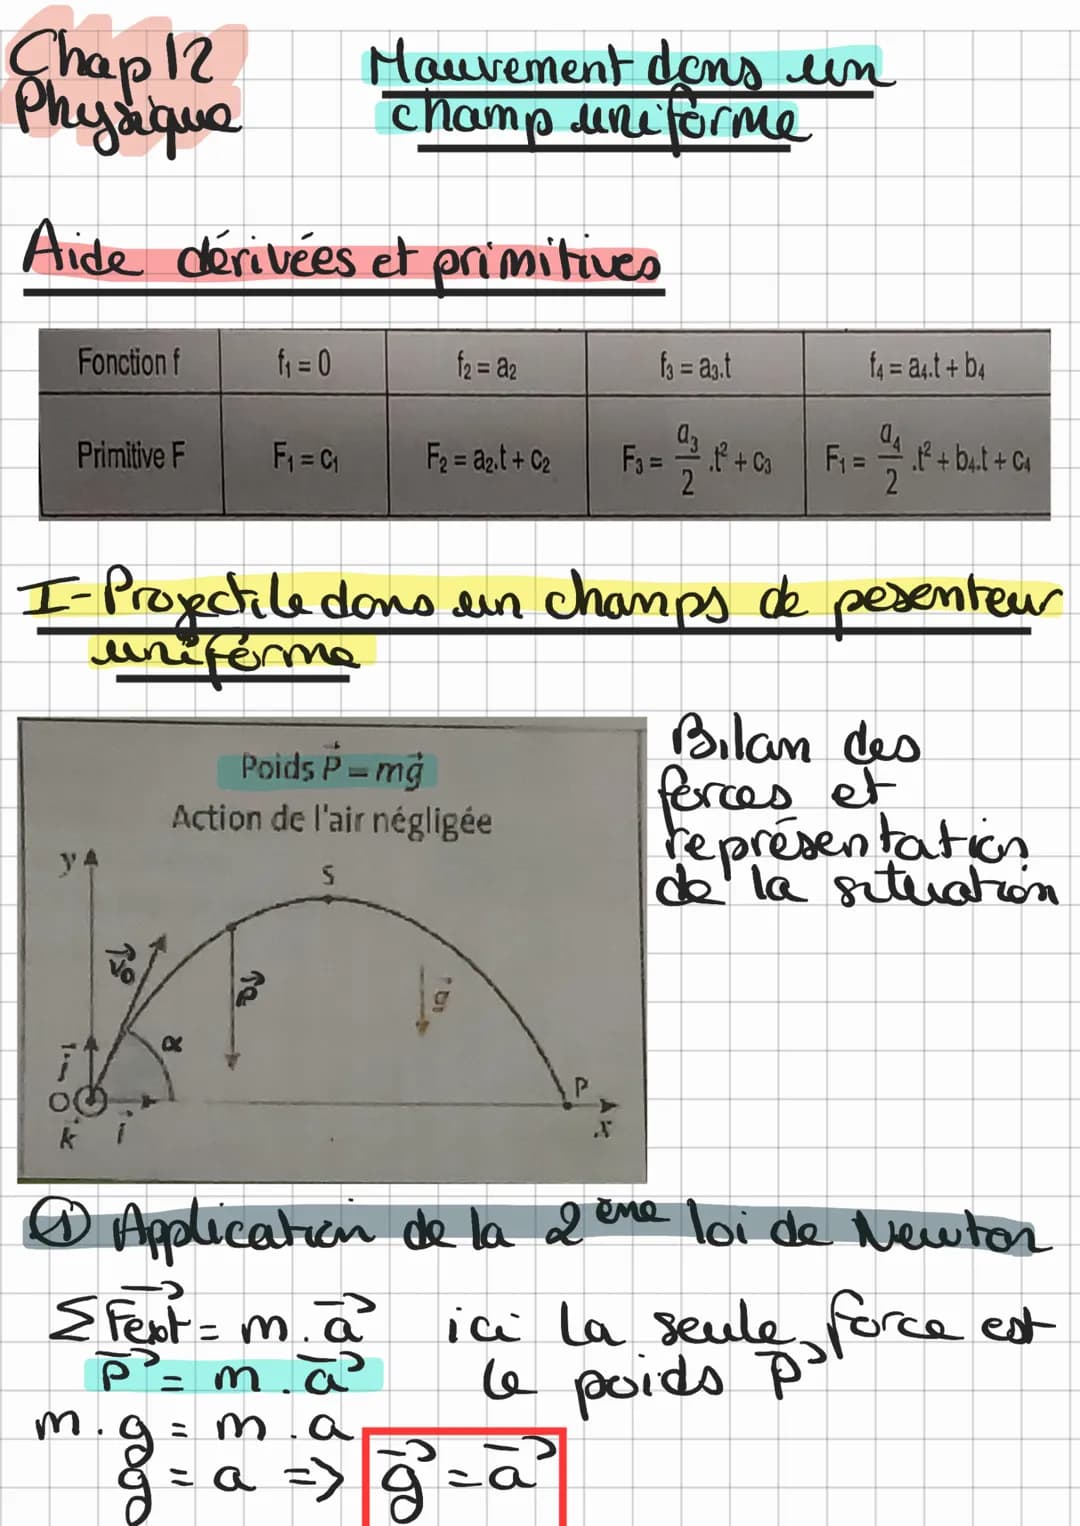 Chap 12
Physique
Mouvement dans un
champ uniforme
Aide dérivées et primitives
Fonction f f₁ = 0 f₂ = a₂ f₃ = a₃.t f₄ = a₄.t + b₄
Primitive F F₁ = c₁ F₂ = a₂.t + c₂ F₃ = a₃/2 .t² + c₃ F₁ = a₄/2 .t² + b₄.t + c₄
I- Projectile dans un champs de pesenteur
uniforme
Poids P⃗ = mg⃗
Action de l'air négligée
y
S
v₀⃗
P⃗
g⃗
α
j⃗
O
k⃗
i⃗
P
x
Bilan des
forces et
représentation
de la situation
① Application de la 2ème loi de Newton
Σ F⃗ext = m.a⃗ ici la seule force est
P⃗ = m.a⃗ le poids P⃗
m.g = m.a
g = a => g⃗ = a⃗